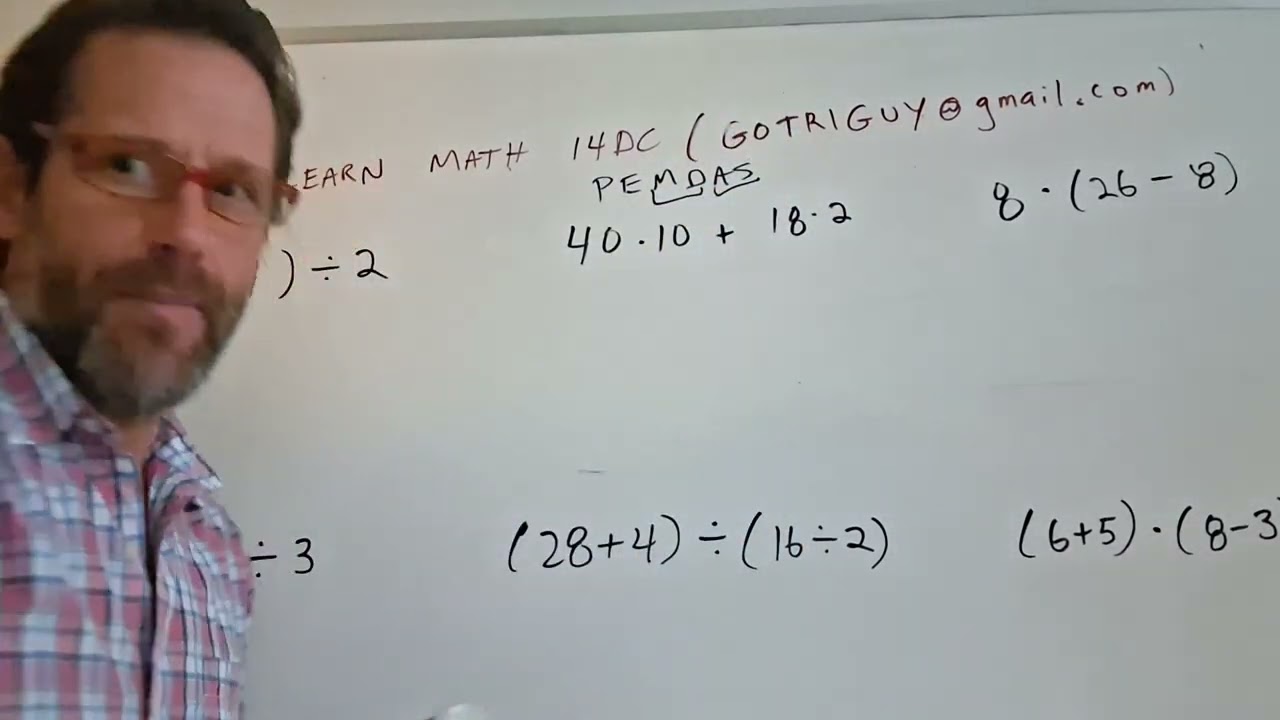 EARN MATH 14DC (GOTRIGUY@gmail.com)
PEMDAS
) ÷ 2
40 · 10 + 18 · 2
8 · (26 - 8)
÷ 3
(28+4) ÷ (16÷2)
(6+5) · (8-3